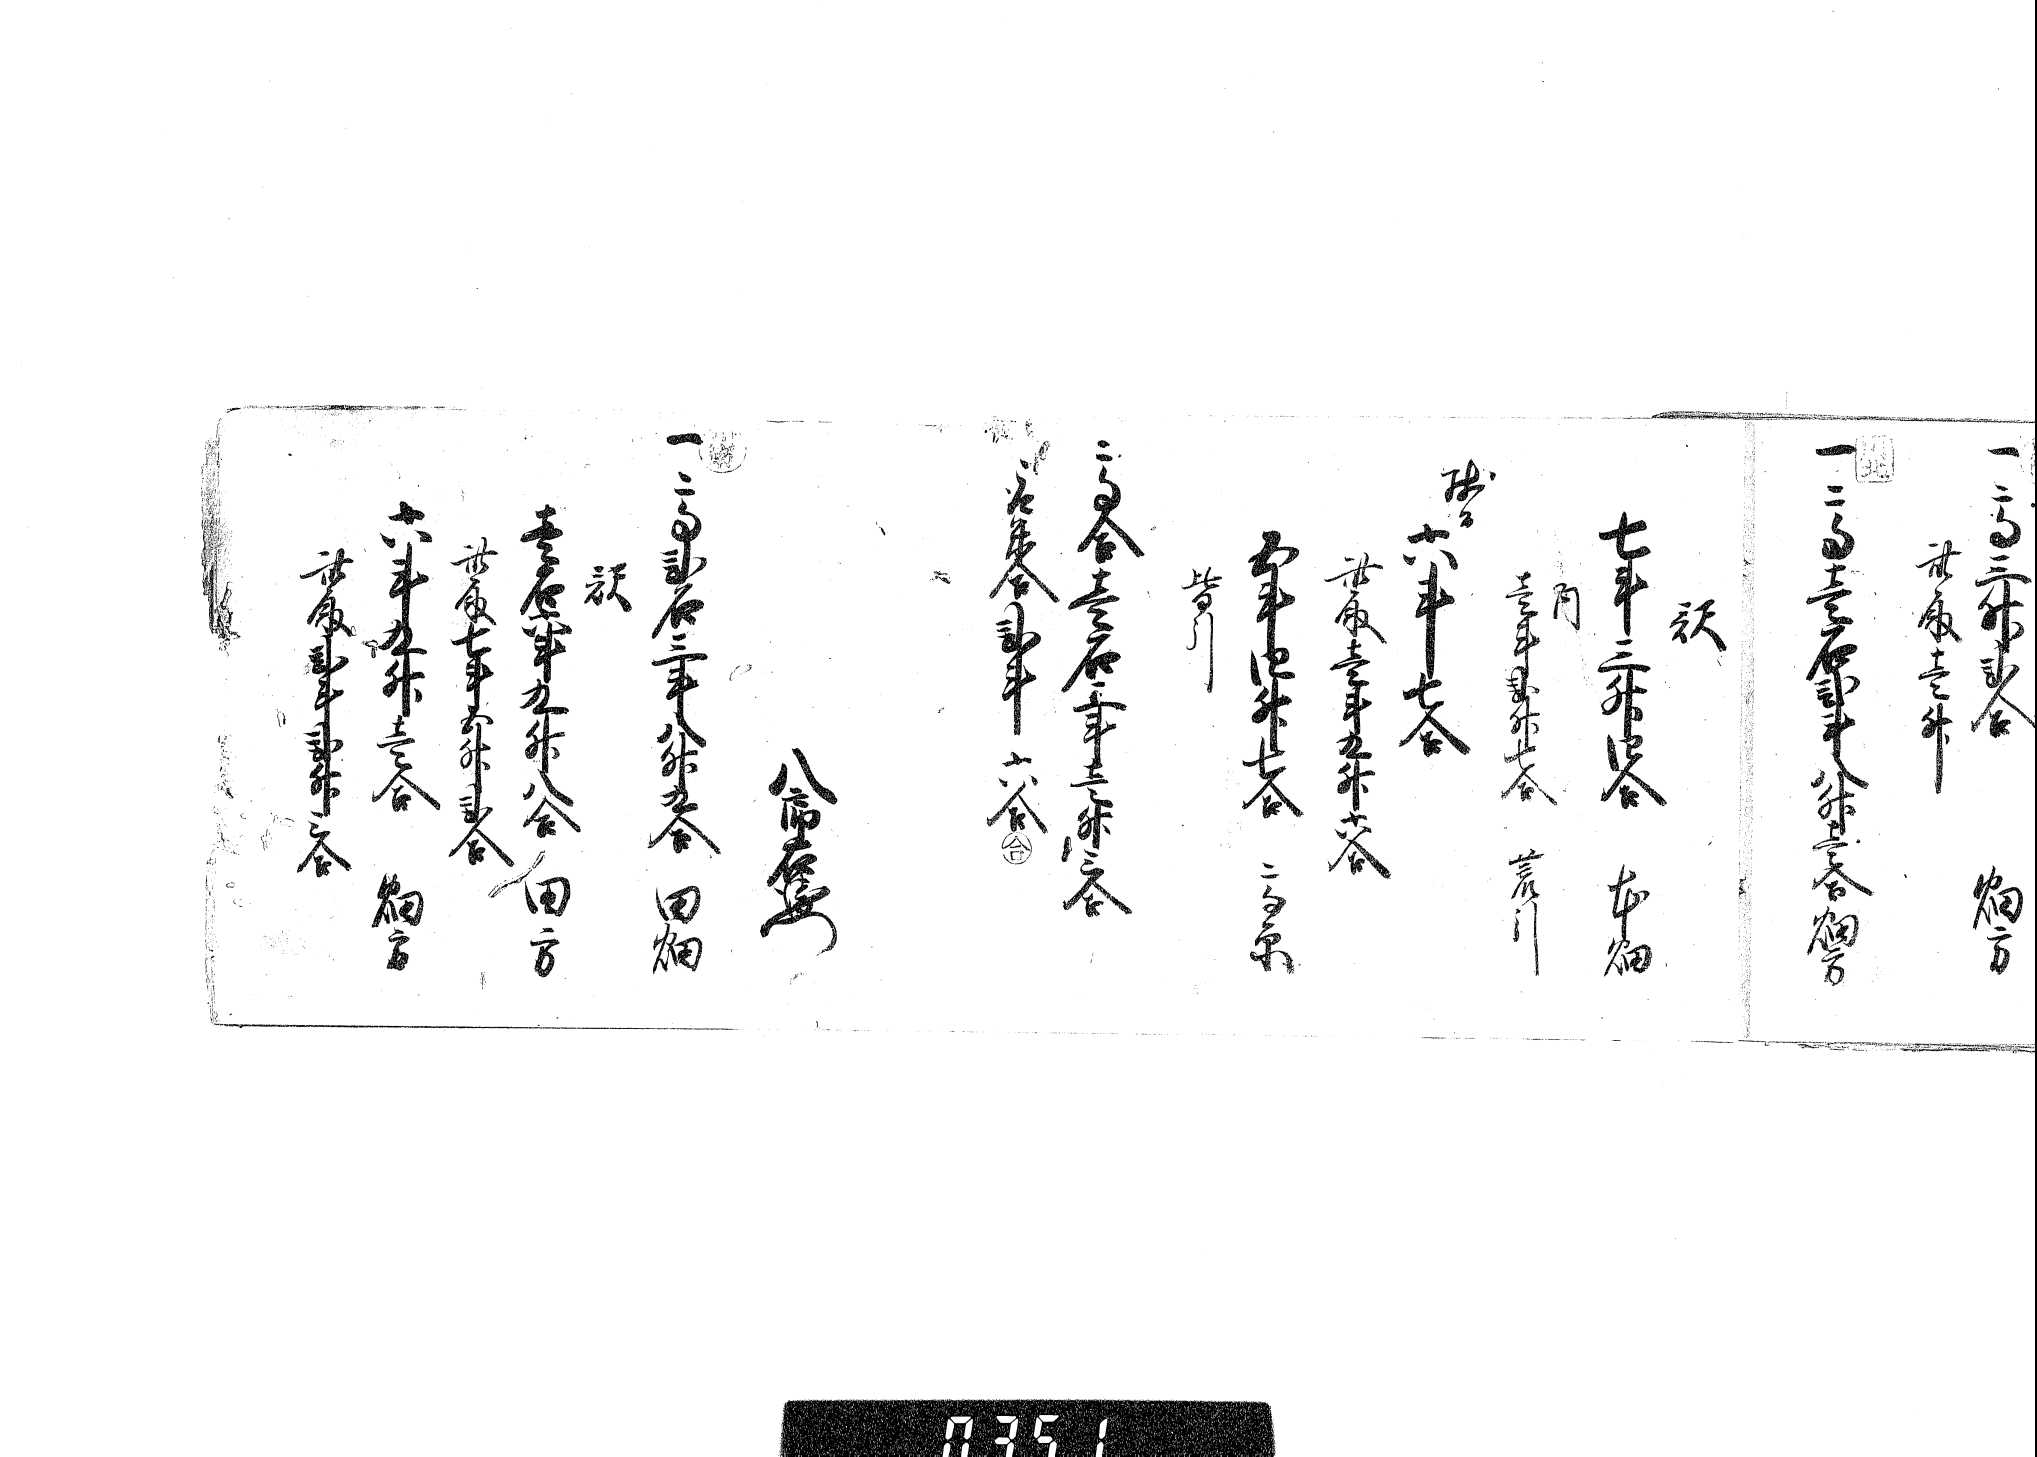 一 高三升弐合 畑方
此取壱升
一 高壱石弐斗八升壱合 畑方
訳
七斗三升四合 本畑
内
壱斗弐升七合 荒引
残而
六斗七合
此取壱斗九升六合
五斗四升七合 高
皆引
高合壱石三斗壱升三合
取米合弐斗六合 合
八郎右衛門
一 高弐石三斗八升九合 田畑
訳
壱石六斗九升八合 田方
此取七斗五升弐合
六斗九升壱合 畑方
此取弐斗弐升三合
0351